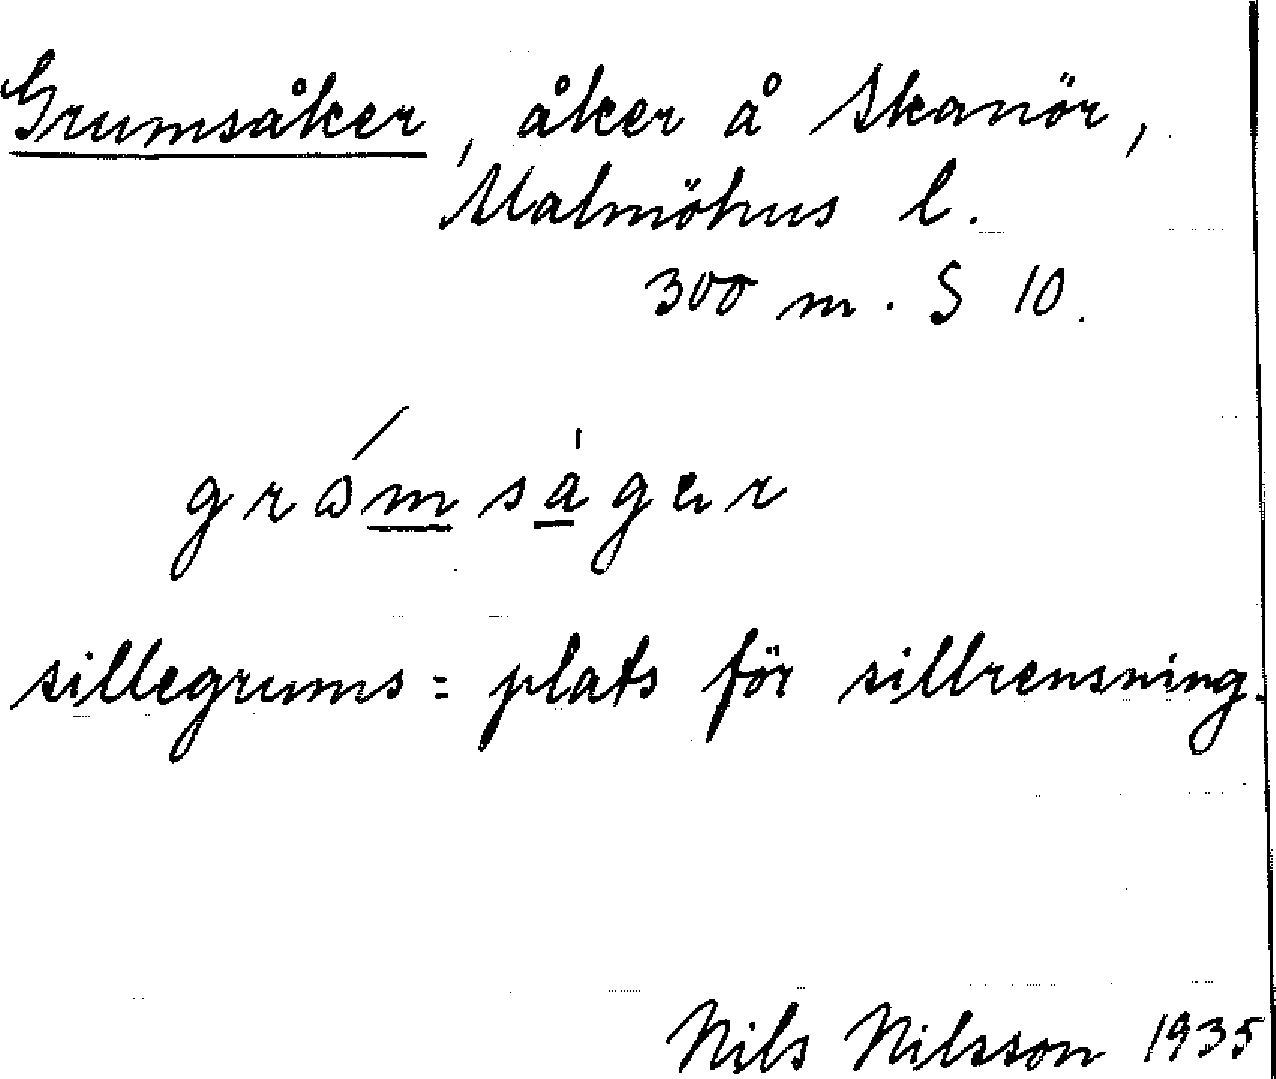 Grumsåker, åker å Skanör,
Malmöhus l.
300 m. S 10.
gròmsàger
sillegrums = plats för sillrensning.
Nils Nilsson 1935